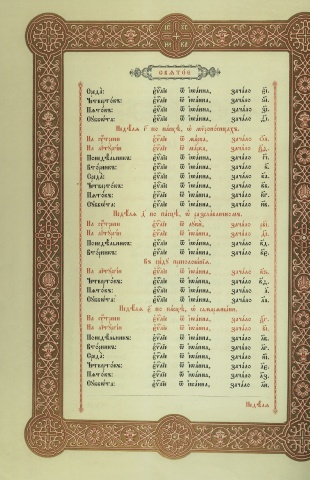 СВѦТОЕ
Среда̀: Еѵⷢ҇лїе ѿ Іѡа́нна, зача́ло
Четверто́къ: Еѵⷢ҇лїе ѿ Іѡа́нна, зача́ло
Пѧто́къ: Еѵⷢ҇лїе ѿ Іѡа́нна, зача́ло
Сꙋббѡ́та: Еѵⷢ҇лїе ѿ Іѡа́нна, зача́ло
Недѣ́лѧ г҃ по па́сцѣ, ѡ мѷроно́сицахъ.
На оу҆́трени: Еѵⷢ҇лїе ѿ Ма́рка, зача́ло
На лїтꙋргі́и: Еѵⷢ҇лїе ѿ Ма́рка, зача́ло
Понедѣ́льникъ: Еѵⷢ҇лїе ѿ Іѡа́нна, зача́ло
Вто́рникъ: Еѵⷢ҇лїе ѿ Іѡа́нна, зача́ло
Среда̀: Еѵⷢ҇лїе ѿ Іѡа́нна, зача́ло
Четверто́къ: Еѵⷢ҇лїе ѿ Іѡа́нна, зача́ло
Пѧто́къ: Еѵⷢ҇лїе ѿ Іѡа́нна, зача́ло
Сꙋббѡ́та: Еѵⷢ҇лїе ѿ Іѡа́нна, зача́ло
Недѣ́лѧ д҃ по па́сцѣ, ѡ разсла́бленнѣмъ.
На оу҆́трени: Еѵⷢ҇лїе ѿ Лꙋкѝ, зача́ло
На лїтꙋргі́и: Еѵⷢ҇лїе ѿ Іѡа́нна, зача́ло
Понедѣ́льникъ: Еѵⷢ҇лїе ѿ Іѡа́нна, зача́ло
Вто́рникъ: Еѵⷢ҇лїе ѿ Іѡа́нна, зача́ло
Въ сре́дꙋ преполове́нїѧ.
На лїтꙋргі́и: Еѵⷢ҇лїе ѿ Іѡа́нна, зача́ло
Четверто́къ: Еѵⷢ҇лїе ѿ Іѡа́нна, зача́ло
Пѧто́къ: Еѵⷢ҇лїе ѿ Іѡа́нна, зача́ло
Сꙋббѡ́та: Еѵⷢ҇лїе ѿ Іѡа́нна, зача́ло
Недѣ́лѧ є҃ по па́сцѣ, ѡ самарѧны́ни.
На оу҆́трени: Еѵⷢ҇лїе ѿ Іѡа́нна, зача́ло
На лїтꙋргі́и: Еѵⷢ҇лїе ѿ Іѡа́нна, зача́ло
Понедѣ́льникъ: Еѵⷢ҇лїе ѿ Іѡа́нна, зача́ло
Вто́рникъ: Еѵⷢ҇лїе ѿ Іѡа́нна, зача́ло
Среда̀: Еѵⷢ҇лїе ѿ Іѡа́нна, зача́ло
Четверто́къ: Еѵⷢ҇лїе ѿ Іѡа́нна, зача́ло
Пѧто́къ: Еѵⷢ҇лїе ѿ Іѡа́нна, зача́ло
Сꙋббѡ́та: Еѵⷢ҇лїе ѿ Іѡа́нна, зача́ло
Недѣ́лѧ